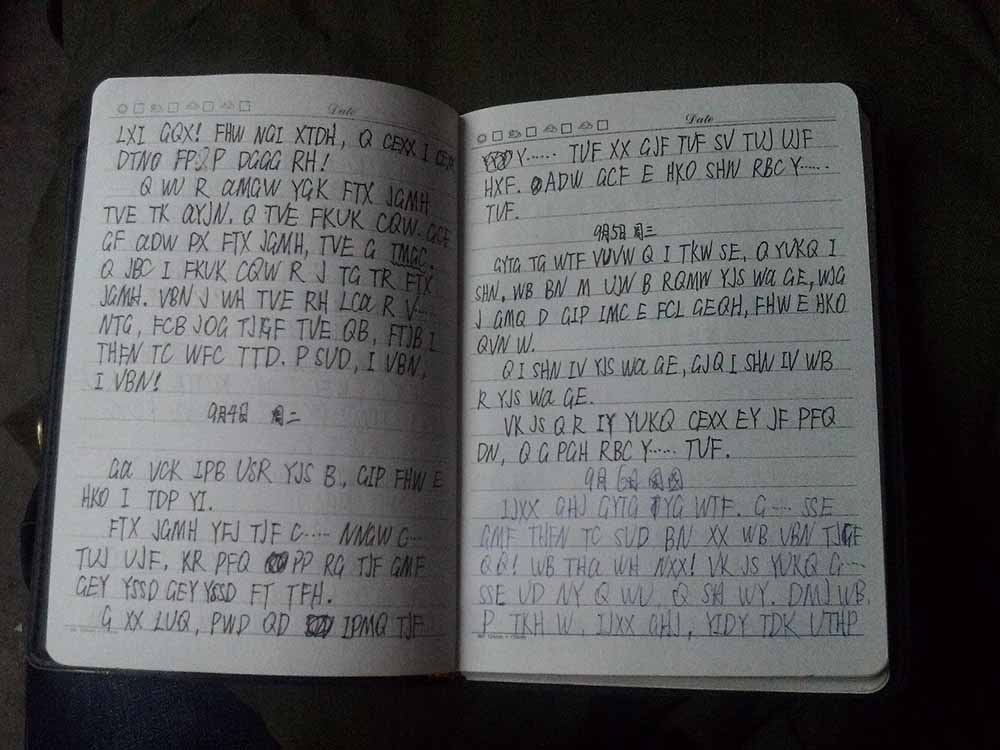 Date
LXI GQX! FHW NGI XTDH, Q CEXX I
DTNO P DGGG RH!
Q WV R QMGW YGK FTX JGMH
TVE TK QYJN. Q TVE FKUK CQW. GGE
GF QDW PX FTX JGMH, TVE G TMGC,
Q JBC I FKUK CQW R J TG TR FTX
JGMH. VBN J WH TVE RH LCQ R V……
NTG, FCB JOG TJGF TVE QB, FTJB I
THFN TC WFC TTD. P SUD, I VBN,
I VBN!
9月4日 周二
GQ VCK IPB USR YJS B, GIP FHW E
HKO I TDP YI.
FTX JGMH YFJ TJF G…… NNGW G……
TWJ UJF, KR PFQ PP RG TJF GMF
GEY YSSD GEY YSSD FT TFH.
G XX LUQ, PWD QD IPMQ TJF
Date
DY…… TVF XX GJF TVF SV TWJ UJF
HXF. QDW GCF E HKO SHN RBC Y……
TVF.
9月5日 周三
GYTG TG WTF VUVW Q I TKW SE, Q YUKQ I
SHN, WB BN M UJW B RQMW YJS WQ GE, WJG
J GMQ D GIP IMC E FCL GEQH, FHW E HKO
QVN W.
Q I SHN IV YJS WQ GE, GJQ I SHN IV WB
R YJS WQ GE.
VK JS Q R IY YUKQ CEXX EY JF PFQ
DN, Q G PGH RBC Y…… TVF.
9月6日 周四
IJXX GHJ GYTG TYG WTF. G…… SSE
GMF THFN TC SUD BN XX WB VBN TJGE
QQ! WB THQ WH NXX! VK JS YUKQ G……
SSE UD NY Q WU, Q SH WY. DMJ WB,
P TKH W, IJXX GHJ, YIDY TDK UTHP